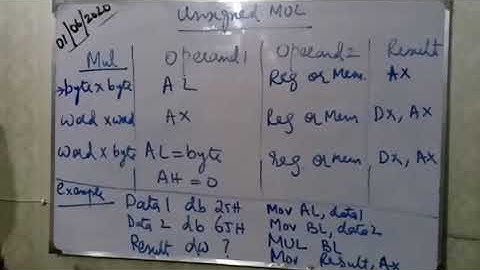 01/06/2020
Unsigned MUL
Mul Operand1 Operand2 Result
→byte x byte AL Reg or Mem. AX
word x word AX Reg or Mem DX, AX
word x byte AL = byte Reg. or Mem DX, AX
AH = 0
Example
Data1 db 25H Mov AL, data1
Data2 db 65H Mov BL, data2
Result dw ? MUL BL
Mov Result, Ax